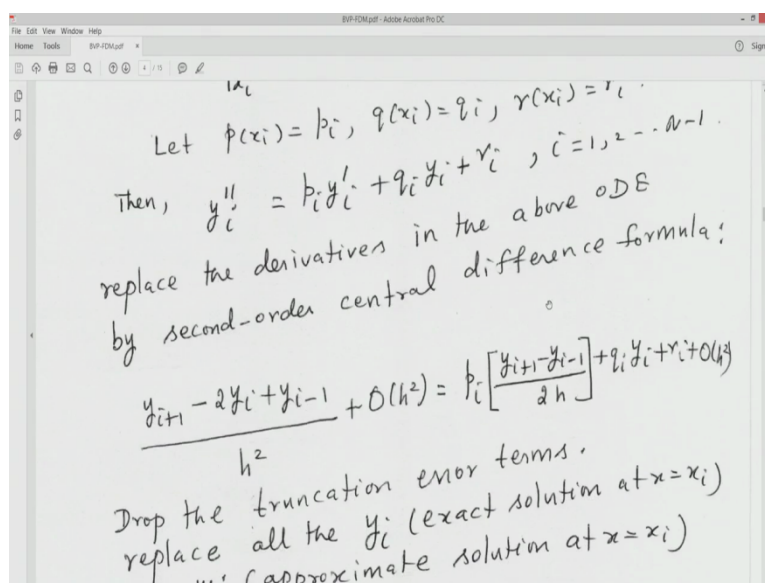 BVP-FDM.pdf - Adobe Acrobat Pro DC
File Edit View Window Help
Home Tools BVP-FDM.pdf × Sign
4 / 15
Let p(xᵢ) = pᵢ, q(xᵢ) = qᵢ, r(xᵢ) = rᵢ.
Then, yᵢ'' = pᵢyᵢ' + qᵢyᵢ + rᵢ , i = 1, 2 -- N-1.
replace the derivatives in the above ODE
by second-order central difference formula:
(yᵢ₊₁ - 2yᵢ + yᵢ₋₁)/h² + O(h²) = pᵢ[(yᵢ₊₁ - yᵢ₋₁)/2h] + qᵢyᵢ + rᵢ + O(h²)
Drop the truncation error terms.
replace all the yᵢ (exact solution at x = xᵢ)
(approximate solution at x = xᵢ)